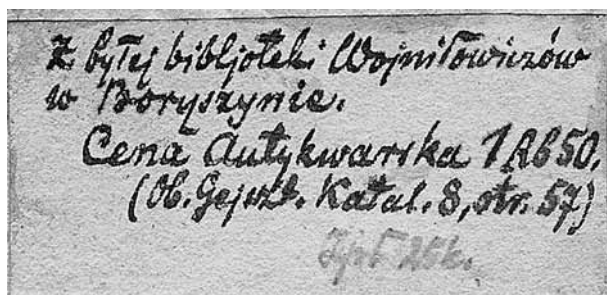 Z byłej bibljoteki Wojniłowiczów
w Boryszynie.
Cena Antykwarska 1 Rb 50.
(Ob. Gejszt. Katal. 8, str. 57)